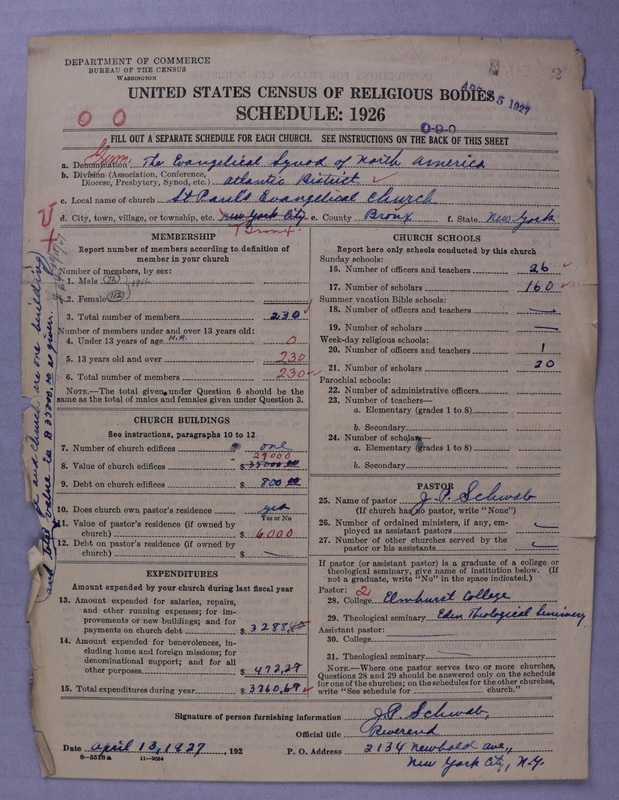 DEPARTMENT OF COMMERCE
BUREAU OF THE CENSUS
WASHINGTON
2
UNITED STATES CENSUS OF RELIGIOUS BODIES
5 1927
SCHEDULE: 1926
0 0
0-9-0
FILL OUT A SEPARATE SCHEDULE FOR EACH CHURCH. SEE INSTRUCTIONS ON THE BACK OF THIS SHEET
Germ.
a. Denomination The Evangelical Synod of North America
b. Division (Association, Conference, Diocese, Presbytery, Synod, etc.) Atlantic District
c. Local name of church St Paul's Evangelical Church
d. City, town, village, or township, etc. New York City e. County Bronx f. State New York
Bronx
MEMBERSHIP
Report number of members according to definition of
member in your church
Number of members, by sex:
1. Male
2. Female
3. Total number of members 230
Number of members under and over 13 years old:
4. Under 13 years of age N.R. 0
5. 13 years old and over 230
6. Total number of members 230
NOTE.—The total given under Question 6 should be the
same as the total of males and females given under Question 3.
CHURCH BUILDINGS
See instructions, paragraphs 10 to 12
7. Number of church edifices one
29000
8. Value of church edifices $ 35000.00
9. Debt on church edifices $ 800.00
10. Does church own pastor's residence? yes
Yes or No
11. Value of pastor's residence (if owned by
church) $ 6000
12. Debt on pastor's residence (if owned by
church) $ —
EXPENDITURES
Amount expended by your church during last fiscal year
13. Amount expended for salaries, repairs,
and other running expenses; for im-
provements or new buildings; and for
payments on church debt $ 3288.40
14. Amount expended for benevolences, in-
cluding home and foreign missions; for
denominational support; and for all
other purposes $ 472.27
15. Total expenditures during year $ 3760.67
CHURCH SCHOOLS
Report here only schools conducted by this church
Sunday schools:
16. Number of officers and teachers 26
17. Number of scholars 160
Summer vacation Bible schools:
18. Number of officers and teachers —
19. Number of scholars —
Week-day religious schools:
20. Number of officers and teachers 1
21. Number of scholars 20
Parochial schools:
22. Number of administrative officers
23. Number of teachers—
a. Elementary (grades 1 to 8)
b. Secondary
24. Number of scholars—
a. Elementary (grades 1 to 8)
b. Secondary
PASTOR
25. Name of pastor J. P. Schwab
(If church has no pastor, write "None")
26. Number of ordained ministers, if any, em-
ployed as assistant pastors —
27. Number of other churches served by the
pastor or his assistants —
If pastor (or assistant pastor) is a graduate of a college or
theological seminary, give name of institution below. (If
not a graduate, write "No" in the space indicated.)
Pastor: 2
28. College Elmhurst College
29. Theological seminary Eden Theological Seminary
Assistant pastor:
30. College
31. Theological seminary
NOTE.—Where one pastor serves two or more churches,
Questions 28 and 29 should be answered only on the schedule
for one of the churches; on the schedules for the other churches,
write "See schedule for church."
and church are one building
and total value is $35000, as given.
Signature of person furnishing information J. P. Schwab,
Official title Reverend
Date April 13, 1927, 192 P. O. Address 2134 Newbold ave.,
New York City, N.Y.
8—5518a 11—9554